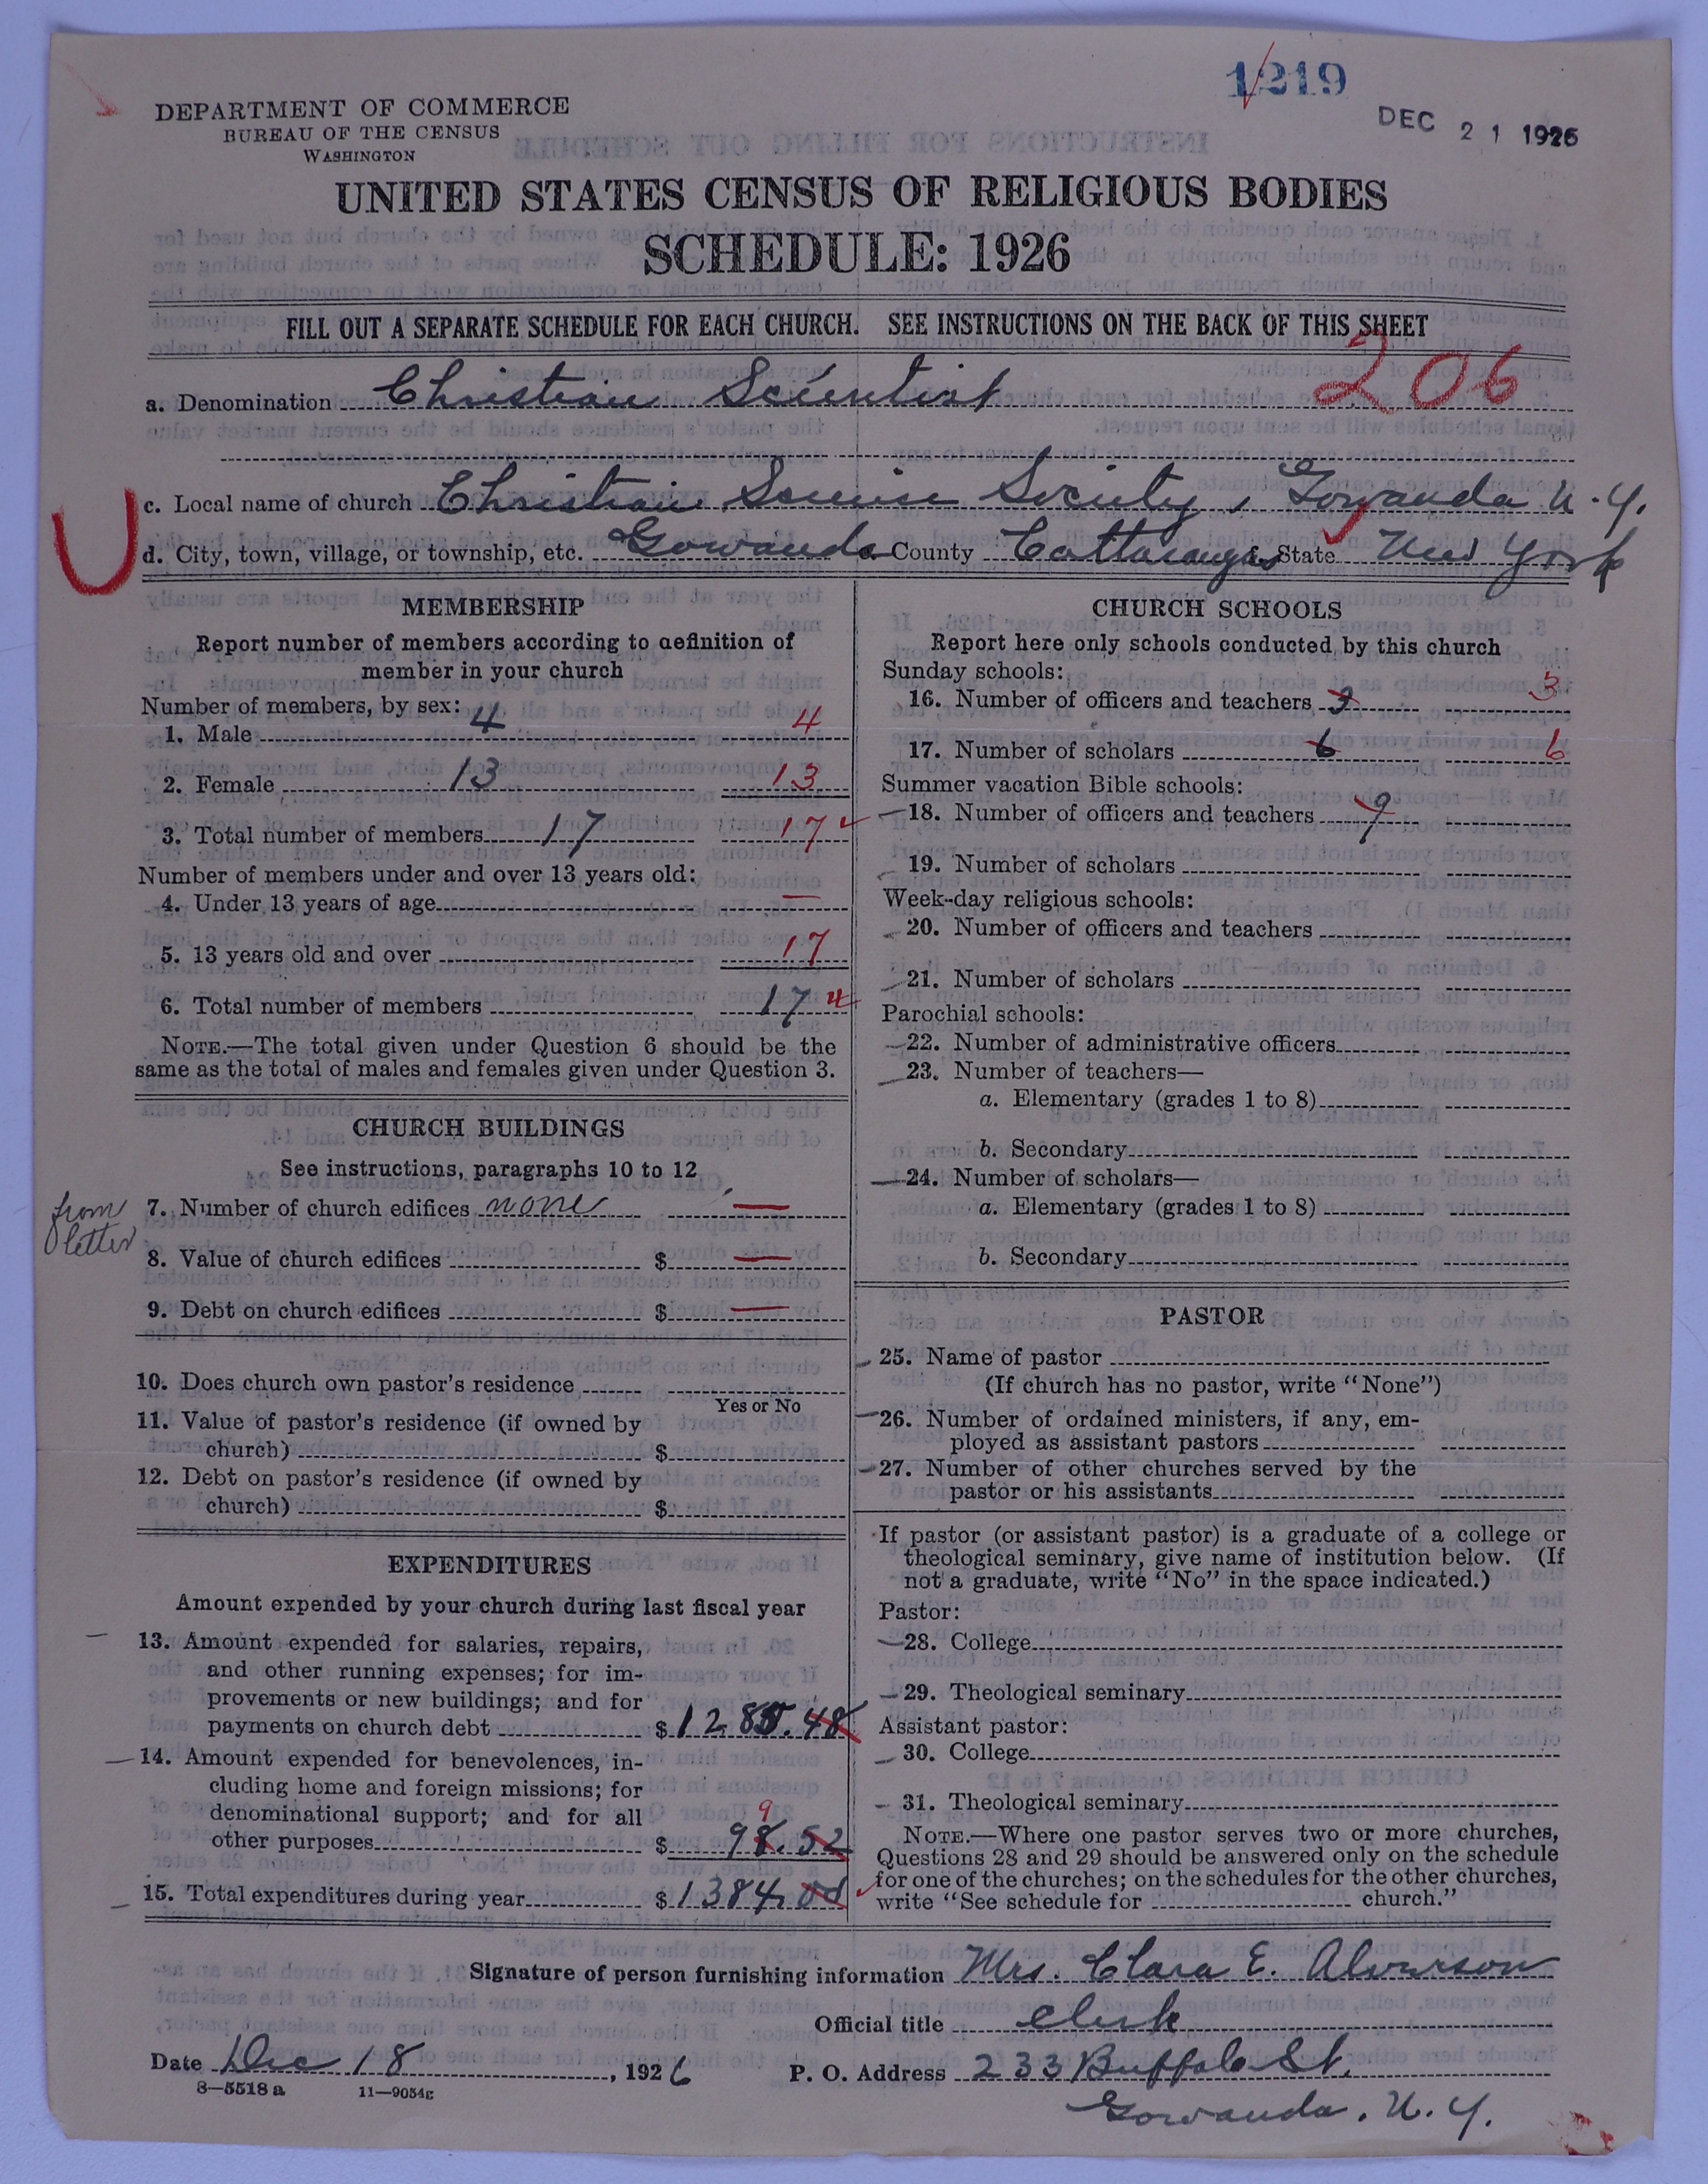 1219
DEC 21 1926
DEPARTMENT OF COMMERCE
BUREAU OF THE CENSUS
WASHINGTON
UNITED STATES CENSUS OF RELIGIOUS BODIES
SCHEDULE: 1926
FILL OUT A SEPARATE SCHEDULE FOR EACH CHURCH. SEE INSTRUCTIONS ON THE BACK OF THIS SHEET
206
a. Denomination Christian Scientist
c. Local name of church Christian Science Society, Gowanda N.Y.
d. City, town, village, or township, etc. Gowanda County Cattaraugus State New York
MEMBERSHIP
Report number of members according to definition of
member in your church
Number of members, by sex:
1. Male 4 4
2. Female 13 13
3. Total number of members 17 17
Number of members under and over 13 years old:
4. Under 13 years of age —
5. 13 years old and over 17
6. Total number of members 17
NOTE.—The total given under Question 6 should be the
same as the total of males and females given under Question 3.
CHURCH BUILDINGS
See instructions, paragraphs 10 to 12
from
letter
7. Number of church edifices none —
8. Value of church edifices $ —
9. Debt on church edifices $ —
10. Does church own pastor's residence
Yes or No
11. Value of pastor's residence (if owned by
church) $
12. Debt on pastor's residence (if owned by
church) $
EXPENDITURES
Amount expended by your church during last fiscal year
13. Amount expended for salaries, repairs,
and other running expenses; for im-
provements or new buildings; and for
payments on church debt $ 1285.48
14. Amount expended for benevolences, in-
cluding home and foreign missions; for
denominational support; and for all
9
other purposes $ 98.52
15. Total expenditures during year $ 1384.00
CHURCH SCHOOLS
Report here only schools conducted by this church
Sunday schools:
16. Number of officers and teachers 3 3
17. Number of scholars 6 6
Summer vacation Bible schools:
18. Number of officers and teachers 9
19. Number of scholars
Week-day religious schools:
20. Number of officers and teachers
21. Number of scholars
Parochial schools:
22. Number of administrative officers
23. Number of teachers—
a. Elementary (grades 1 to 8)
b. Secondary
24. Number of scholars—
a. Elementary (grades 1 to 8)
b. Secondary
PASTOR
25. Name of pastor
(If church has no pastor, write "None")
26. Number of ordained ministers, if any, em-
ployed as assistant pastors
27. Number of other churches served by the
pastor or his assistants
If pastor (or assistant pastor) is a graduate of a college or
theological seminary, give name of institution below. (If
not a graduate, write "No" in the space indicated.)
Pastor:
28. College
29. Theological seminary
Assistant pastor:
30. College
31. Theological seminary
NOTE.—Where one pastor serves two or more churches,
Questions 28 and 29 should be answered only on the schedule
for one of the churches; on the schedules for the other churches,
write "See schedule for church."
Signature of person furnishing information Mrs. Clara E. Alverson
Official title Clerk
Date Dec 18, 1926 P. O. Address 233 Buffalo St.
Gowanda, N.Y.
8—5518 a 11—9054c